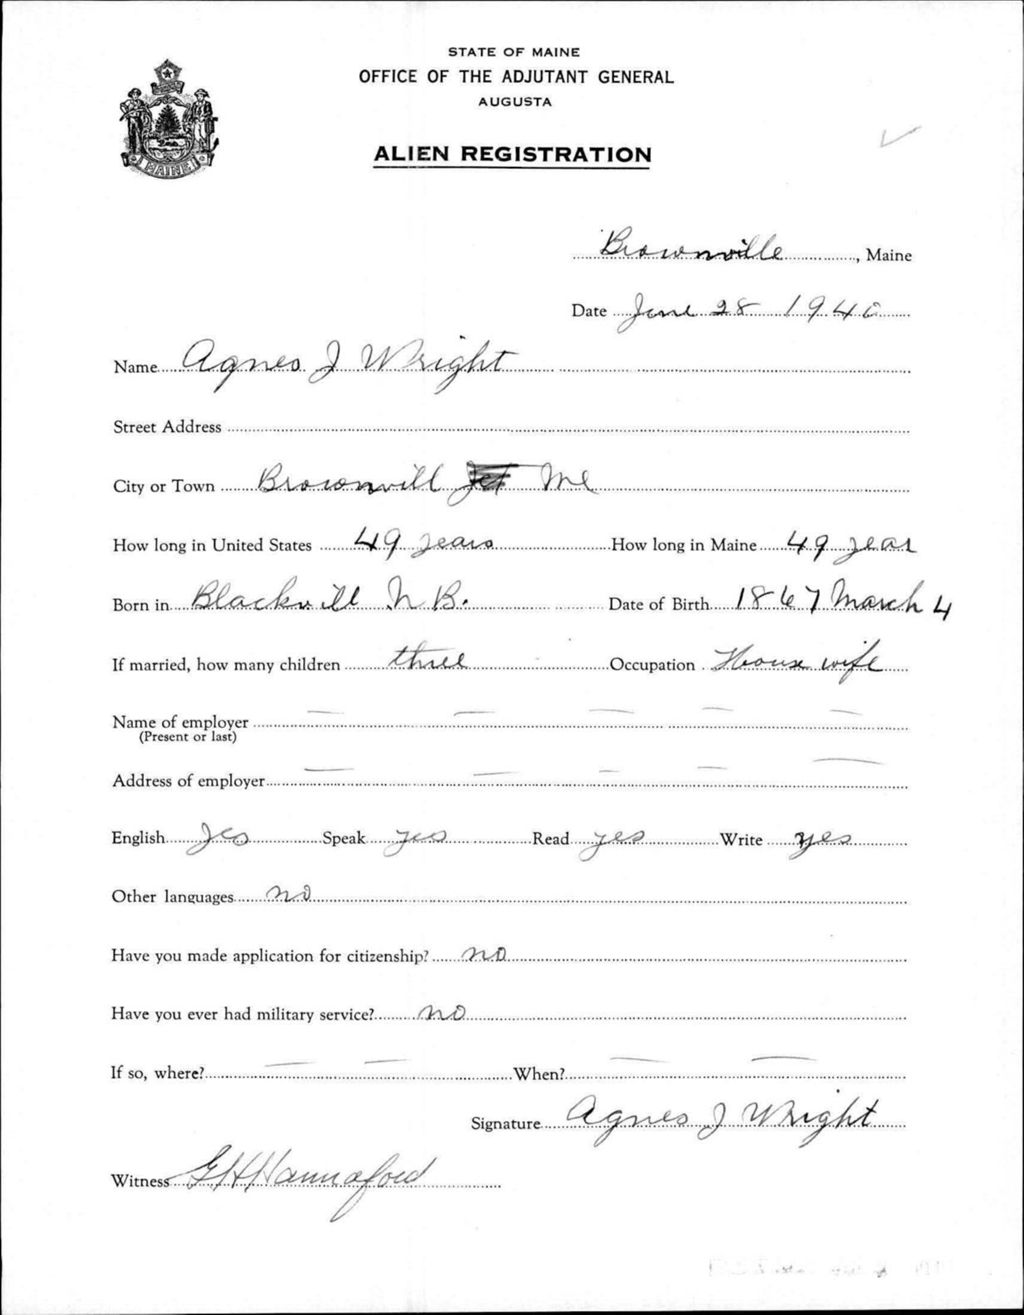 STATE OF MAINE
OFFICE OF THE ADJUTANT GENERAL
AUGUSTA
ALIEN REGISTRATION
MAINE
Brownville, Maine
Date June 28 1940
Name Agnes J Wright
Street Address
City or Town Brownvill Jct Me
How long in United States 49 years How long in Maine 49 year
Born in Blackvill N B. Date of Birth 1867 March 4
If married, how many children three Occupation House wife
Name of employer
(Present or last)
Address of employer
English Yes Speak yes Read yes Write yes
Other languages no
Have you made application for citizenship? no
Have you ever had military service? no
If so, where? When?
Signature Agnes J Wright
Witness G H Hannaford